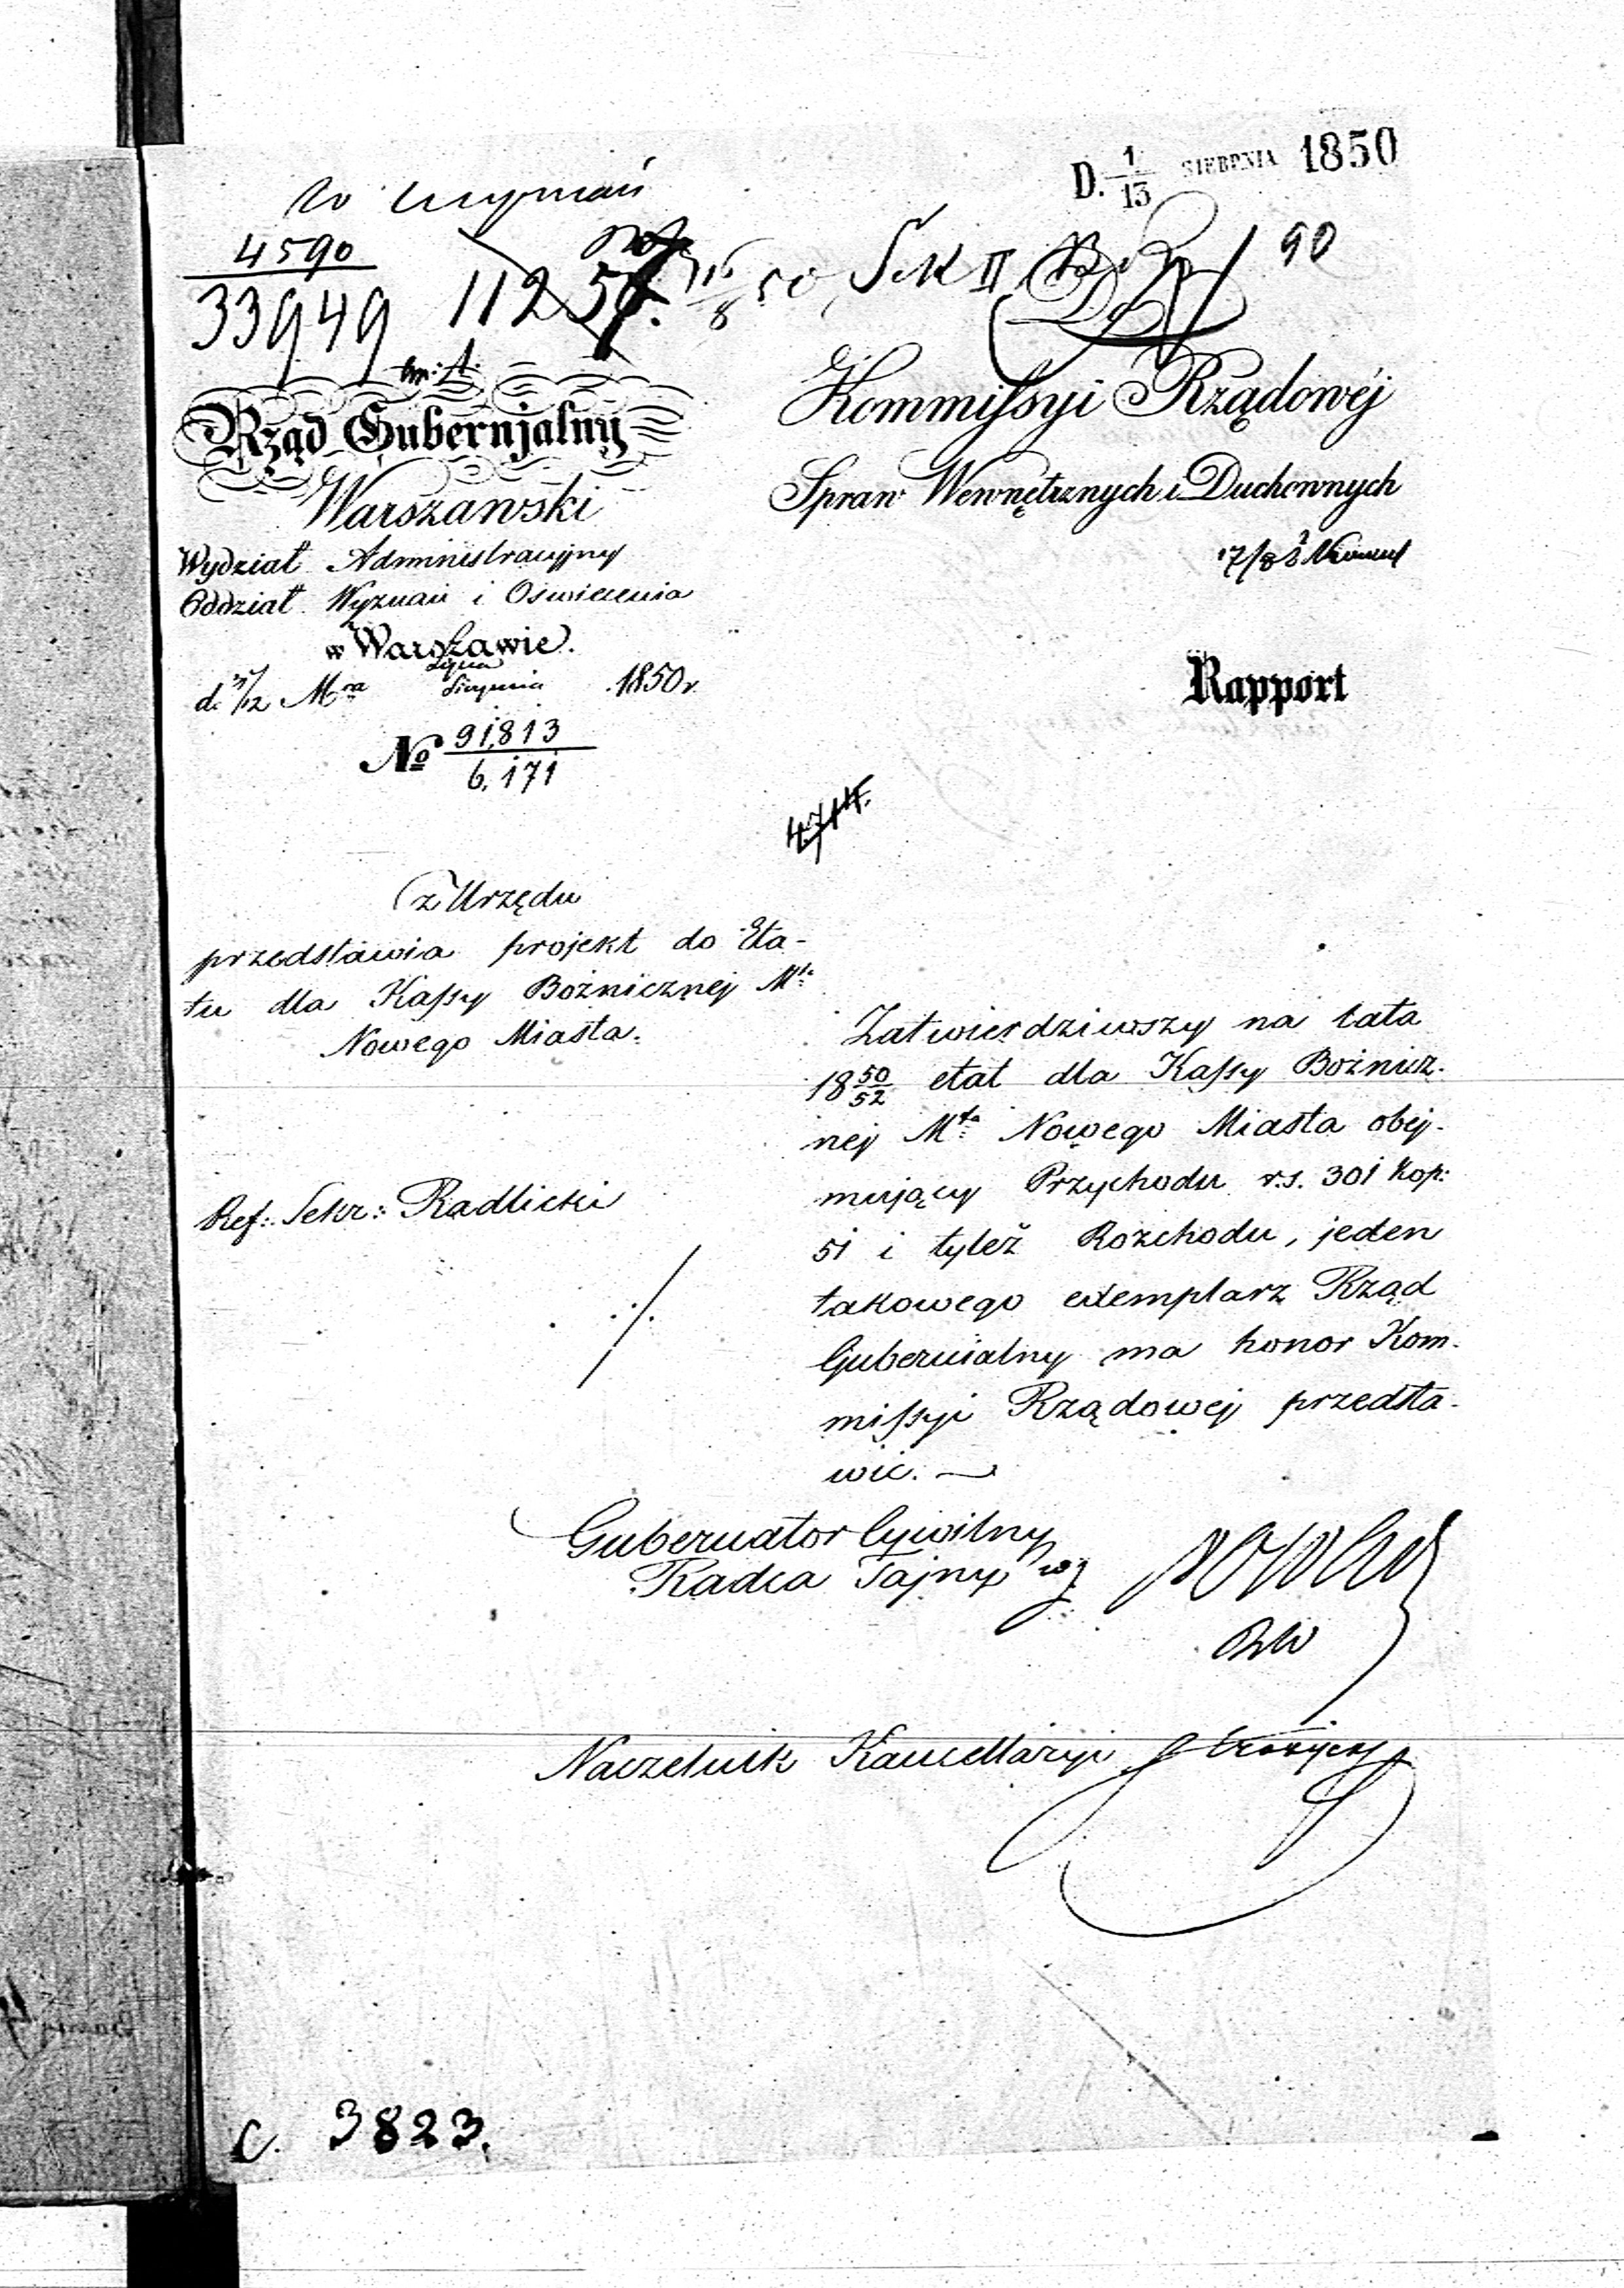 D. 1/13 SIERPNIA 1850
W Wyznań
4590
33949
112
50 Sek II
90
Rząd Gubernjalny
Warszawski
Wydział Administracyjny
Oddział Wyznań i Oświecenia
w Warszawie.
d. 31/12 Mca Lipca Sierpnia 1850 r.
No 91,813
6,171
Kommissyi Rządowéj
Spraw Wewnętrznych i Duchownych
17/8
Rapport
4714.
z Urzędu
przedstawia projekt do Eta-
tu dla Kassy Bożnicznej Mta
Nowego Miasta.
Ref: Sekr: Radlicki
Zatwierdziwszy na lata
18 50/52 etat dla Kassy Bożnicz-
nej Mta Nowego Miasta obej-
mujący Przychodu r.s. 301 kop:
51 i tyleż Rozchodu, jeden
takowego exemplarz Rząd
Gubernialny ma honor Kom-
missyi Rządowej przedsta-
wić.
Gubernator Cywilny
Radca Tajny wz
Naczelnik Kancellaryi
C. 3823.